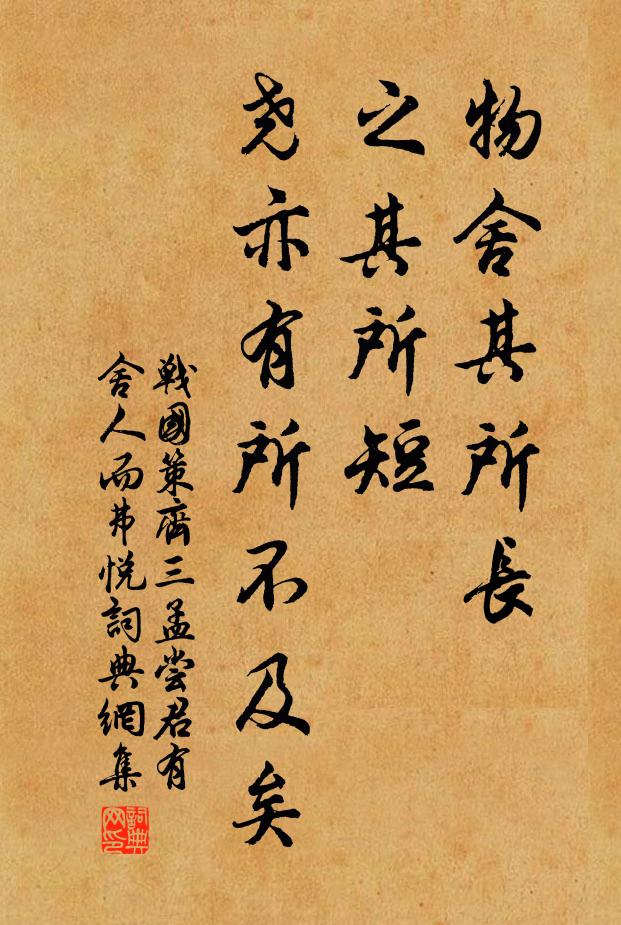 物舍其所長
之其所短
尧亦有所不及矣
戰國策齊三孟尝君有
舍人而弗悅詞典網集
詞典
网印